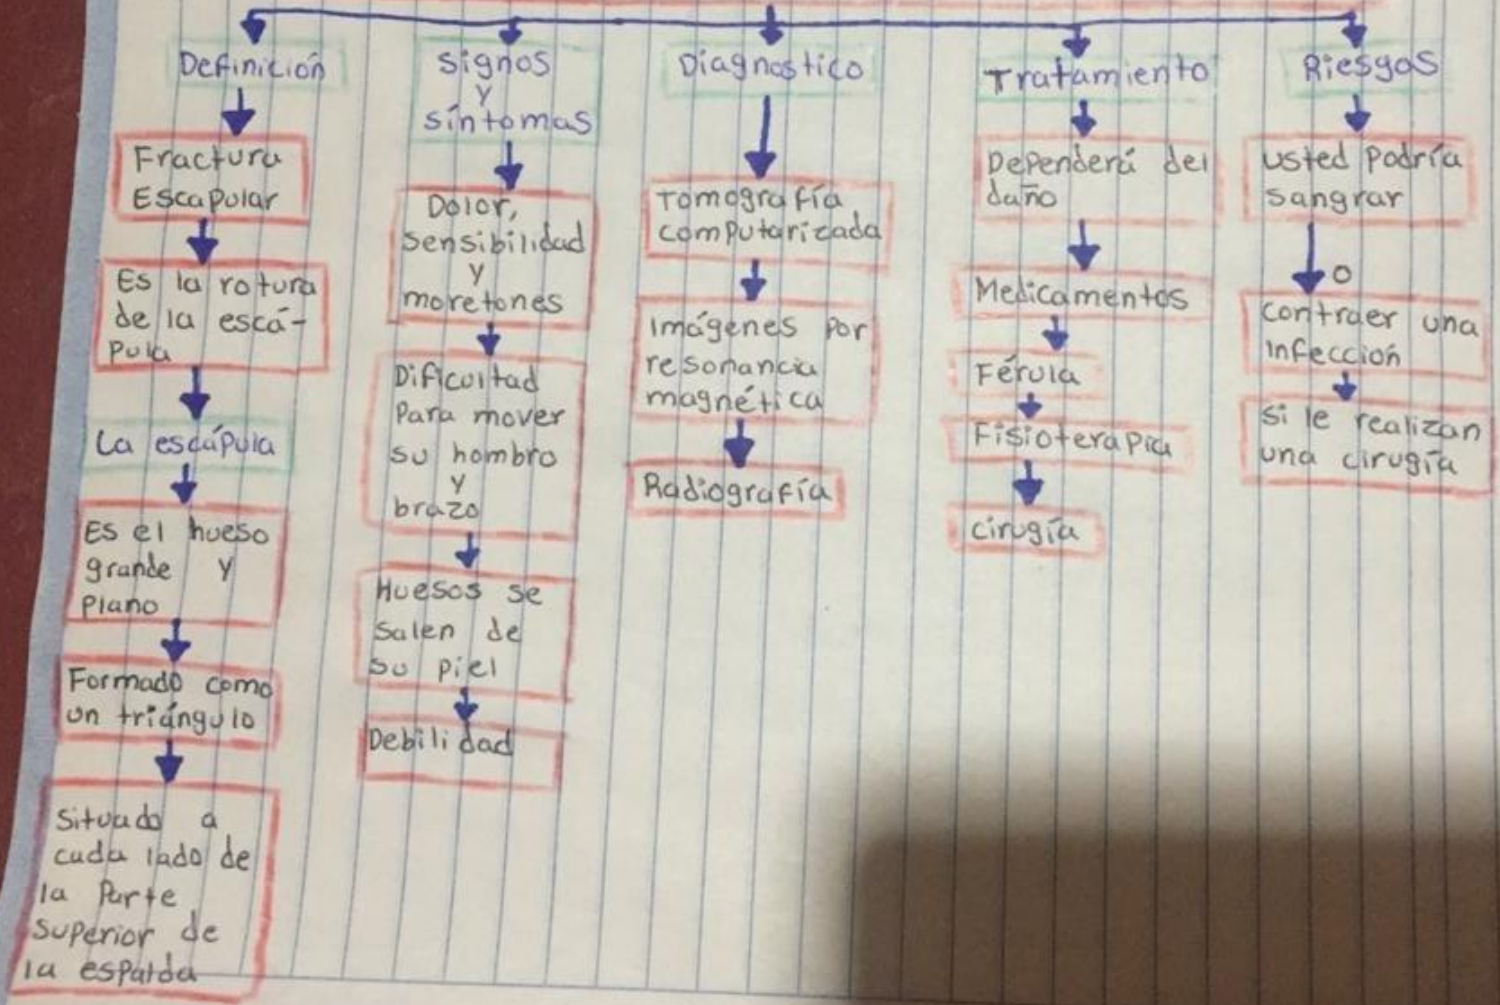 Definición
Fractura
Escapular
Es la rotura
de la escá-
pula
La escápula
Es el hueso
grande y
plano
Formado como
un triángulo
Situado a
cada lado de
la Parte
superior de
la espalda
signos
y
síntomas
Dolor,
sensibilidad
y
moretones
Dificultad
Para mover
su hombro
y
brazo
Huesos se
salen de
su piel
Debilidad
Diagnostico
Tomografía
computarizada
Imágenes por
resonancia
magnética
Radiografía
Tratamiento
Dependerá del
daño
Medicamentos
Férula
Fisioterapia
cirugía
Riesgos
usted podría
sangrar
o
contraer una
infección
si le realizan
una cirugía